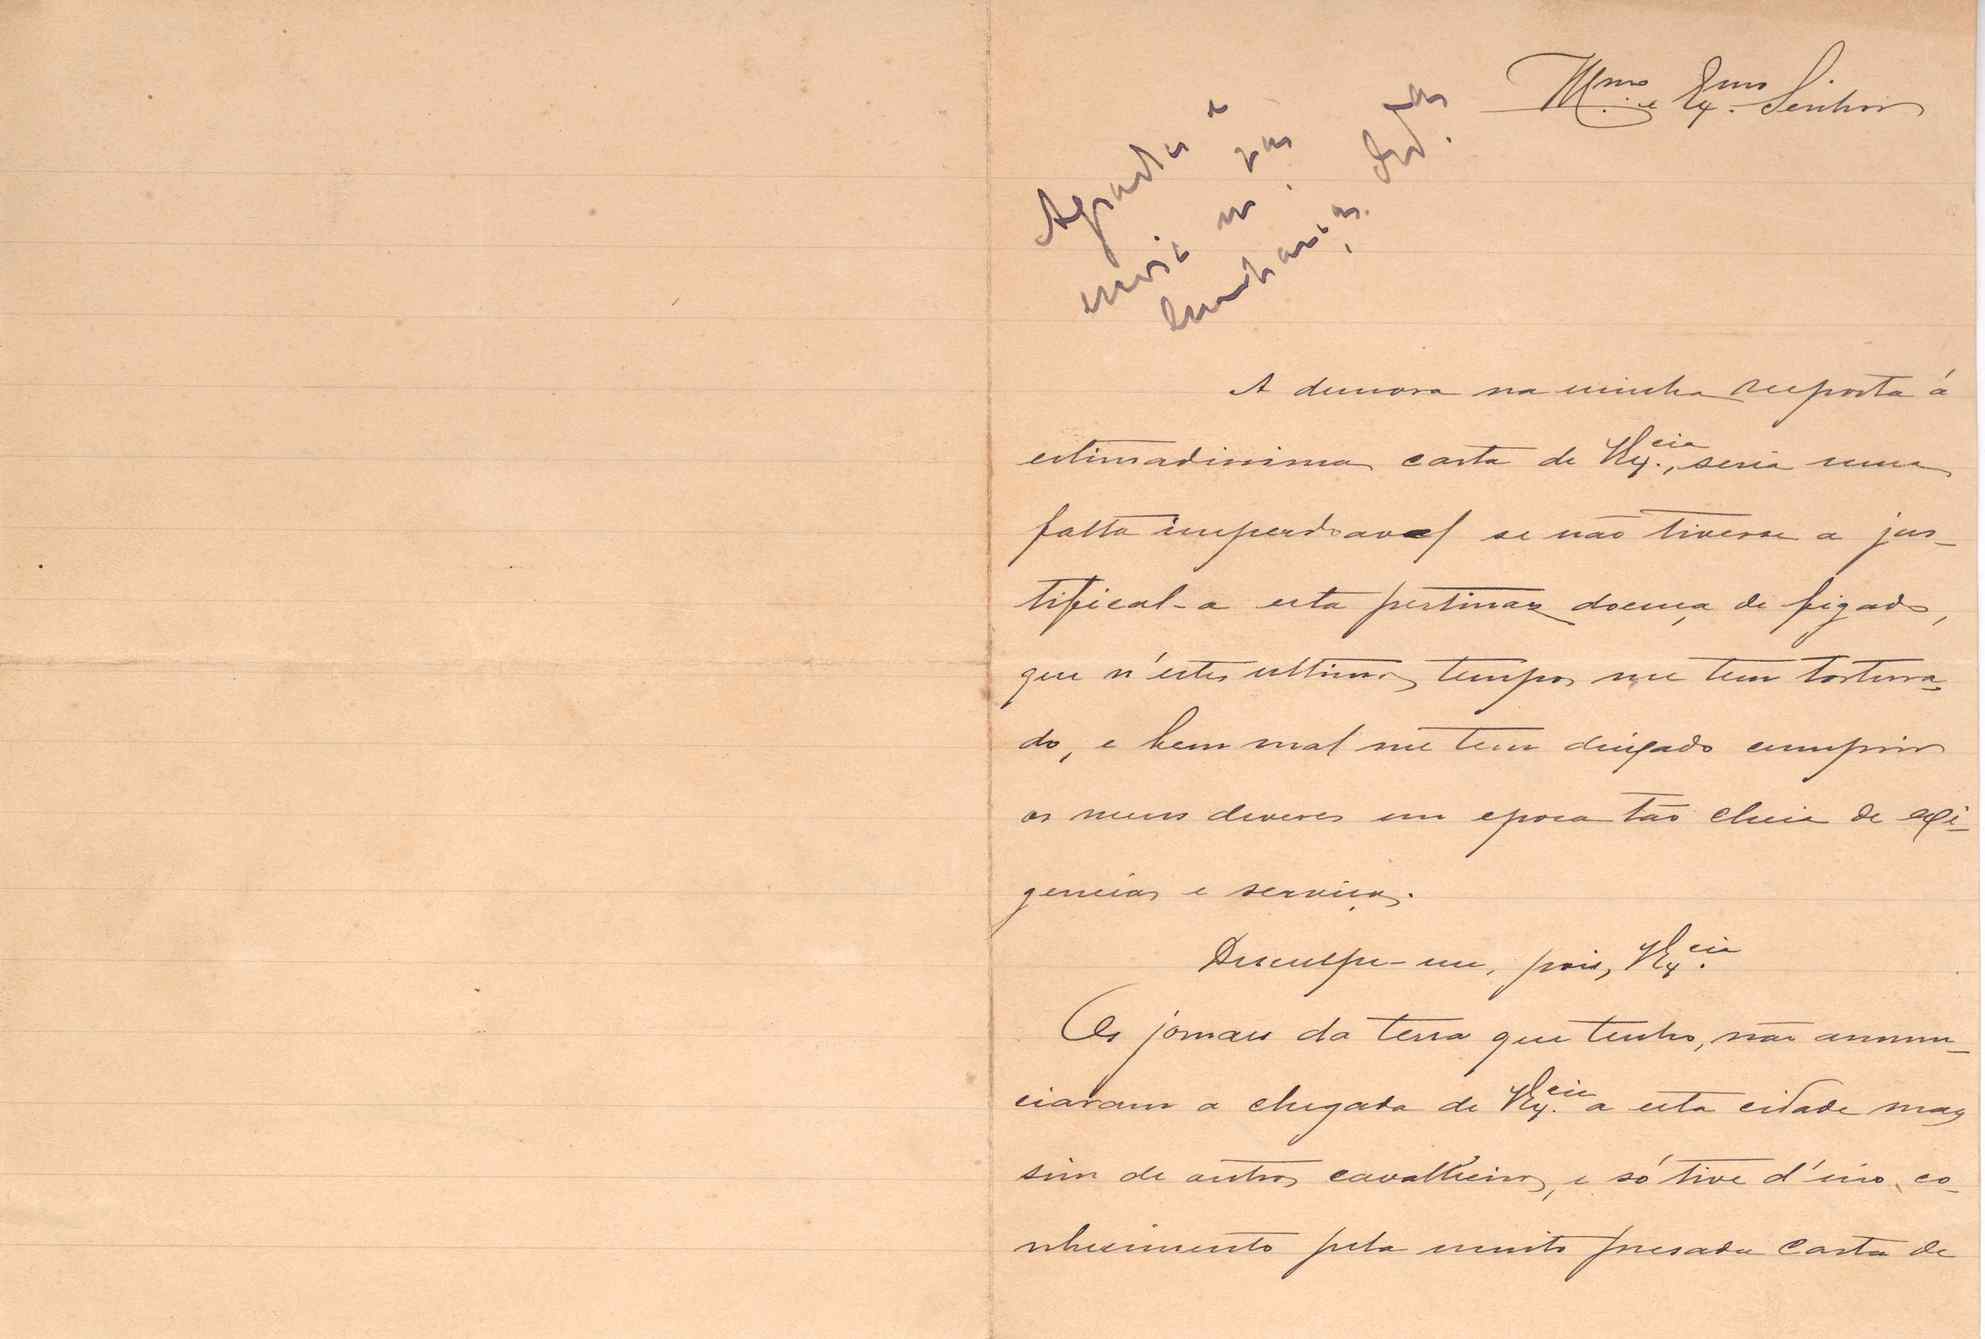 Illmo e Exmo Senhor
Agradeci e
envio
A demora na minha resposta á
estimadissima carta de V. Ex.cia, seria uma
falta imperdoavel se não tivesse a jus-
tifical-a esta pertinaz doença de figado,
que n'estes ultimos tempos me tem tortura-
do, e bem mal me tem deixado cumprir
os meus deveres em epoca tão cheia de exi-
gencias e serviços.
Desculpe-me, pois, V. Ex.cia
Os jornaes da terra que tenho, não annun-
ciaram a chegada de V. Ex.cia a esta cidade mas
sim de outros cavalheiros, e só tive d'isso co-
nhecimento pela muito presada carta de